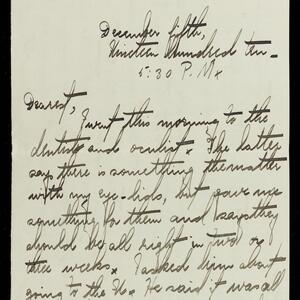 December fifth,
Nineteen Hundred ten—
5:30 P.M.
Dearest,
I went this morning to the
dentist and oculist. The latter
says there is something the matter
with my eye-lids, but gave me
something for them and says they
should be all right in two or
three weeks. I asked him about
going to the U. He said it was all